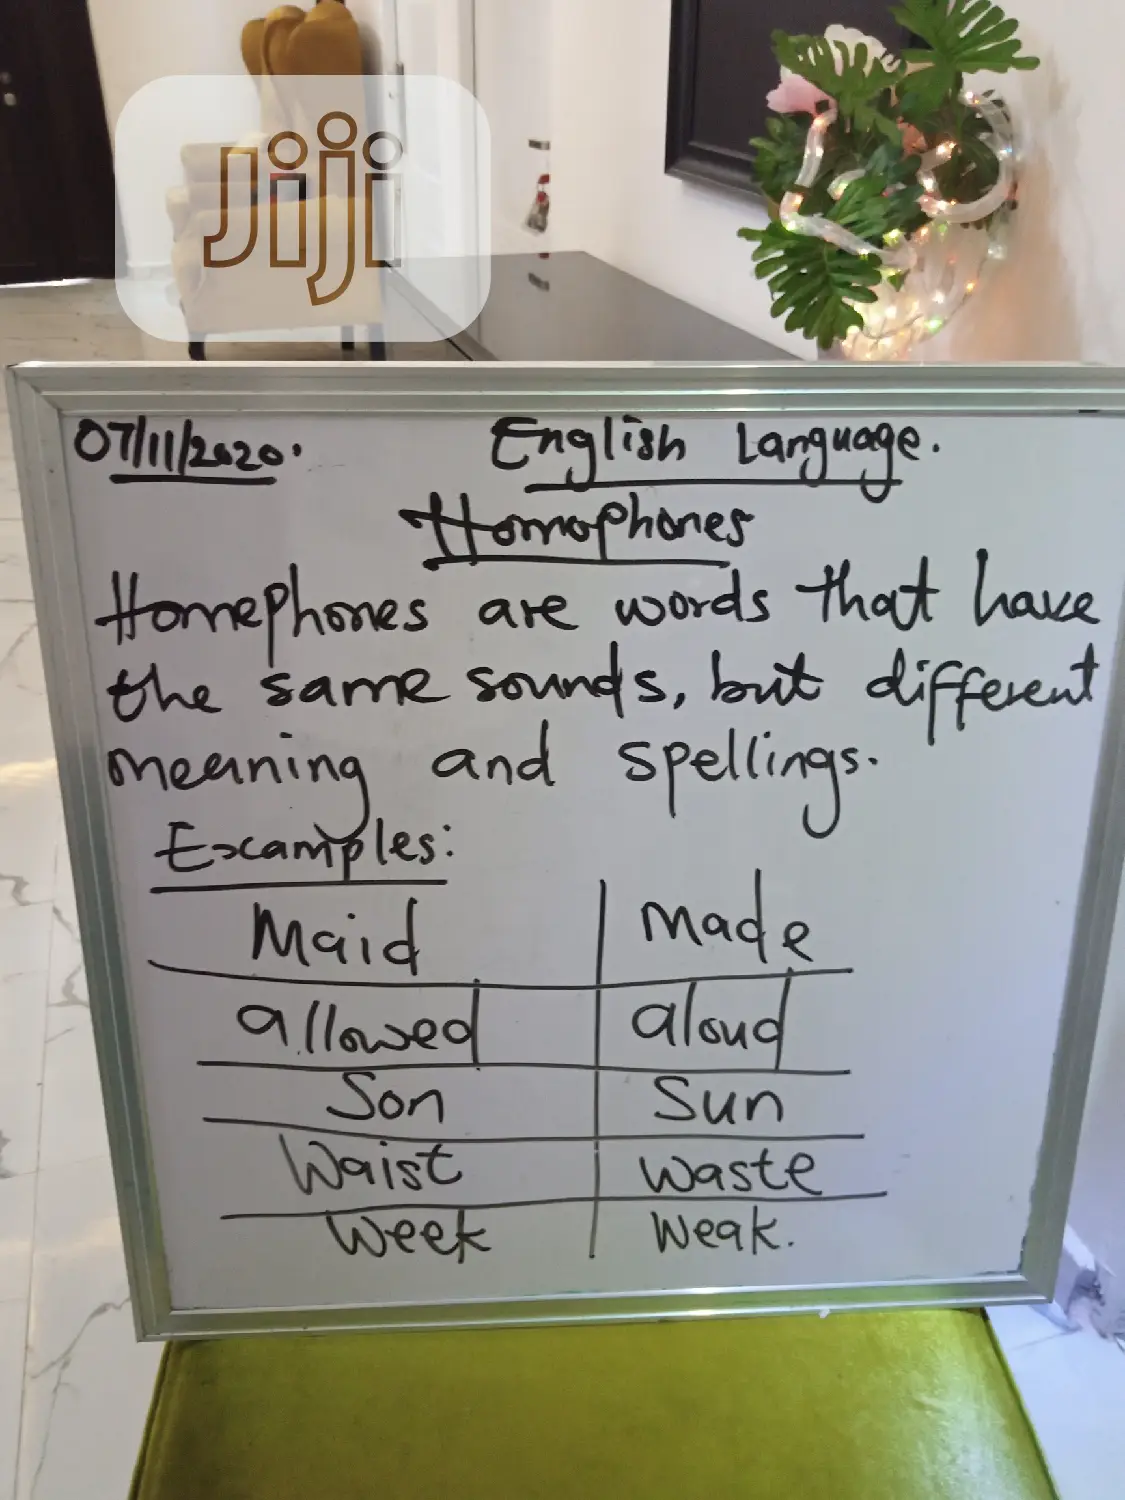 Jiji
07/11/2020. English Language.
Homophones
Homephones are words that have
the same sounds, but different
meaning and spellings.
Examples:
Maid made
allowed aloud
Son Sun
Waist waste
Week weak.